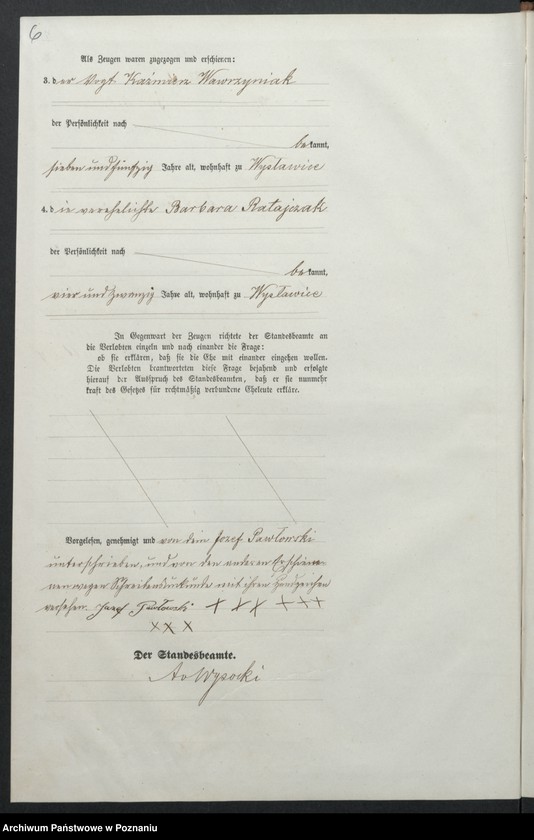 6
Als Zeugen waren zugezogen und erschienen:
3. der Vogt Kaźmierz Wawrzyniak
der Persönlichkeit nach
bekannt,
sieben und fünfzig Jahre alt, wohnhaft zu Wysławice
4. die verehelichte Barbara Ratajczak
der Persönlichkeit nach
bekannt,
vier und zwanzig Jahre alt, wohnhaft zu Wysławice
In Gegenwart der Zeugen richtete der Standesbeamte an
die Verlobten einzeln und nach einander die Frage:
ob sie erklären, daß sie die Ehe mit einander eingehen wollen.
Die Verlobten beantworteten diese Frage bejahend und erfolgte
hierauf der Ausspruch des Standesbeamten, daß er sie nunmehr
kraft des Gesetzes für rechtmäßig verbundene Eheleute erkläre.
Vorgelesen, genehmigt und von dem Jozef Pawłowski
unterschrieben, und von den anderen Erschiene-
nen wegen Schreibensunkunde mit ihren Handzeichen
versehen. Jozef Pawłowski + XX +++
XXX
Der Standesbeamte.
Av Wysocki
Archiwum Państwowe w Poznaniu